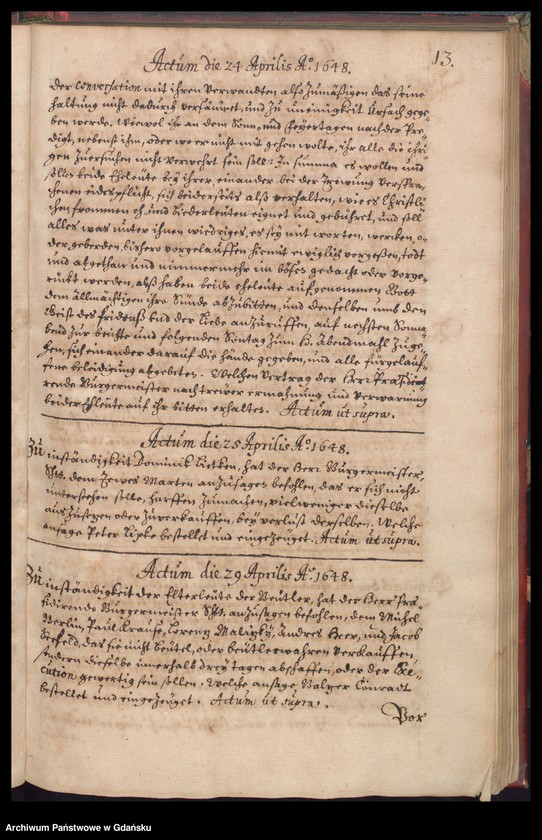 13.
Actum die 24 Aprilis Aº. 1648.
der Conversation mit ihren Verwandten also zumäßigen, das seine
haltung nicht dadurch versäumet, und zu uneinigkeit Ursach gege-
ben werde. Wiewol ihr an dem Sonn- und Feyertagen nach der Pre-
digt, nebenst ihm, oder wo er nicht mit gehen wolte, ihr alle die ihri-
gen zuersuchen nicht verwehrt sein soll: In summa es wollen und
sollen beide Eheleute bey ihrer einander bei der Trewung verspro-
chenen eidespflicht, sich beiderseits alß verhalten, wie es Christli-
chen frommen eh und biederleuten eignet und gebühret, und soll
alles was unter ihnen wiedriges, es sey mit worten, wercken, o-
der geberden, bishero vorgelauffen hiemit ewiglich vergeßen, todt
und abgethan und nimmermehr im bösen gedacht oder vorge-
rückt werden, alß haben beide eheleute aufgenommen Gott
dem Allmächtigen ihre Sünde abzubitten, und denselben umb den
Geist des friedens und der Liebe anzuruffen, auf nechsten Sonna-
bend zur beichte und folgenden Sontag zum H. Abendmahl zuge-
hen, sich einander darauf die hände gegeben, und alle fürgelauf-
fene beleidigung abgebeten. Welchen Vertrag der Herr Praesidi-
rende Burgermeister nach trewer ermahnung und verwarnung
beider Ehleute auf ihr bitten erhalten. Actum ut supra.
Actum die 25 Aprilis Aº. 1648.
Zu instandigkeit Dominik Lietken, hat der Herr Burgermeister
dem Tewes Marten anzusagen befohlen, das er sich nicht
unterstehen solle, harffen zumachen, vielweniger dieselbe
auszusetzen oder zuverkauffen, bey verlust derselben. Welche
ansage Peter Lipke bestellet und eingezeuget. Actum ut supra.
Actum die 29 Aprilis Aº. 1648.
Zu instandigkeit der Elterleute der Beutler, hat der Herr Prae-
sidirende Burgermeister anzusagen befohlen, dem Michel
Berlin, Paul Krause, Lorentz Malitzky, Andres Beer, und Jacob
Seefeld, das sie nicht beutel, oder beutlerwahren verkauffen,
sondern dieselbe innerhalb drey tagen abschaffen, oder der Exe-
cution gewertig sein sollen. Welche ansage, Baltzer Conradt
bestellet und eingezeuget. Actum ut supra.
Vor
Archiwum Państwowe w Gdańsku